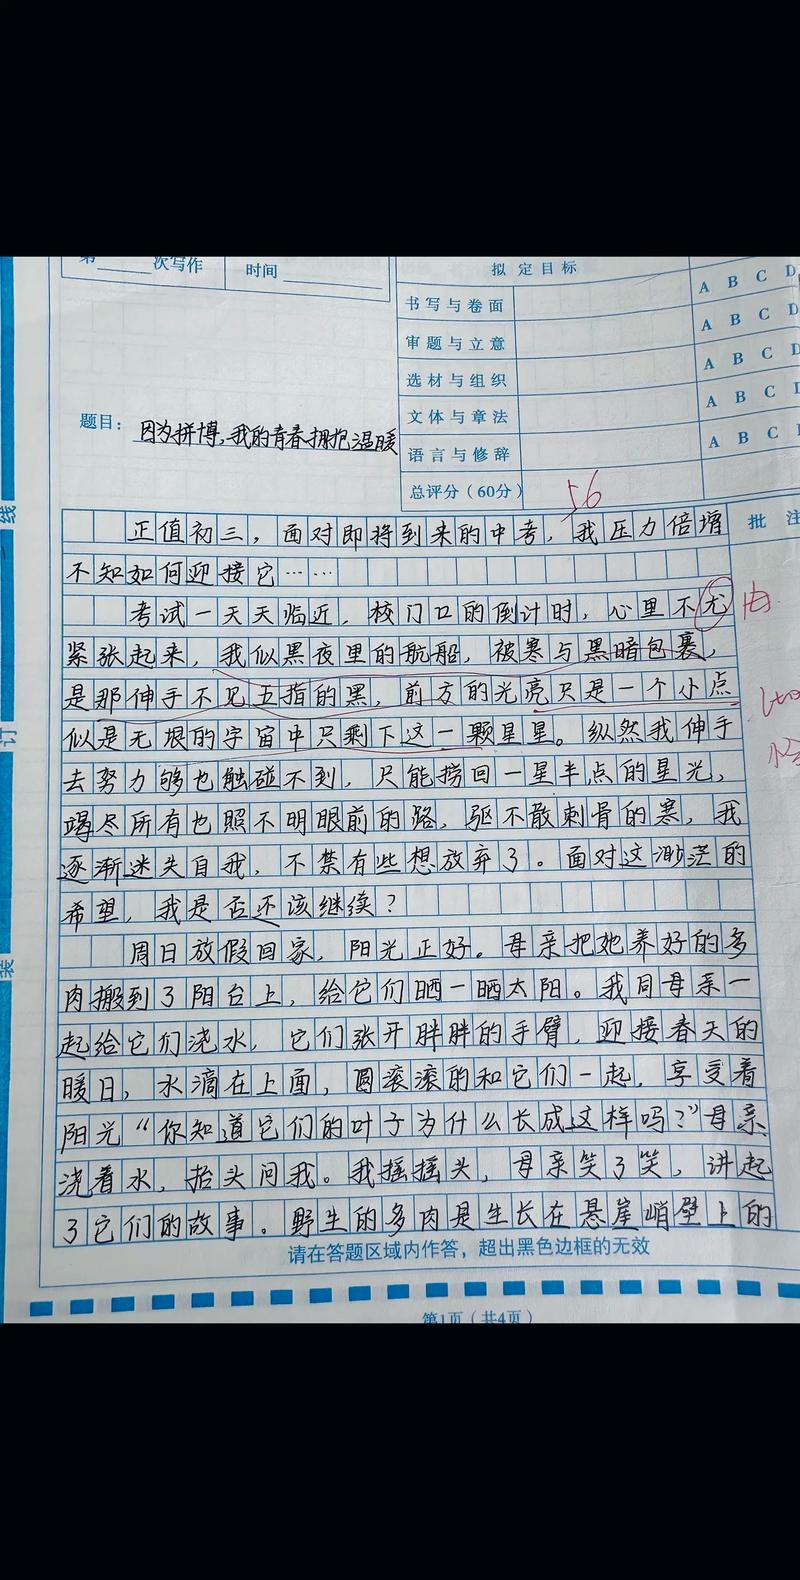 第____次写作
时间
拟定目标
书写与卷面 A B C D
审题与立意 A B C D
选材与组织 A B C D
文体与章法 A B C D
语言与修辞 A B C D
总评分（60分） 56
题目：因为拼博，我的青春拥抱温暖
批注
正值初三，面对即将到来的中考，我压力倍增
不知如何迎接它……
考试一天天临近，校门口的倒计时，心里不尤
由
紧张起来，我似黑夜里的航船，被寒与黑暗包裹，
是那伸手不见五指的黑，前方的光亮只是一个小点
似是无垠的宇宙中只剩下这一颗星星。纵然我伸手
去努力够也触碰不到，只能捞回一星半点的星光，
竭尽所有也照不明眼前的路，驱不散刺骨的寒，我
逐渐迷失自我，不禁有些想放弃了。面对这渺茫的
希望，我是否还该继续？
周日放假回家，阳光正好。母亲把她养好的多
肉搬到了阳台上，给它们晒一晒太阳。我同母亲一
起给它们浇水，它们张开胖胖的手臂，迎接春天的
暖日，水滴在上面，圆滚滚的和它们一起，享受着
阳光“你知道它们的叶子为什么长成这样吗？”母亲
浇着水，抬头问我。我摇摇头，母亲笑了笑，讲起
了它们的故事。野生的多肉是生长在悬崖峭壁上的
请在答题区域内作答，超出黑色边框的无效
第1页（共4页）
线
订
装